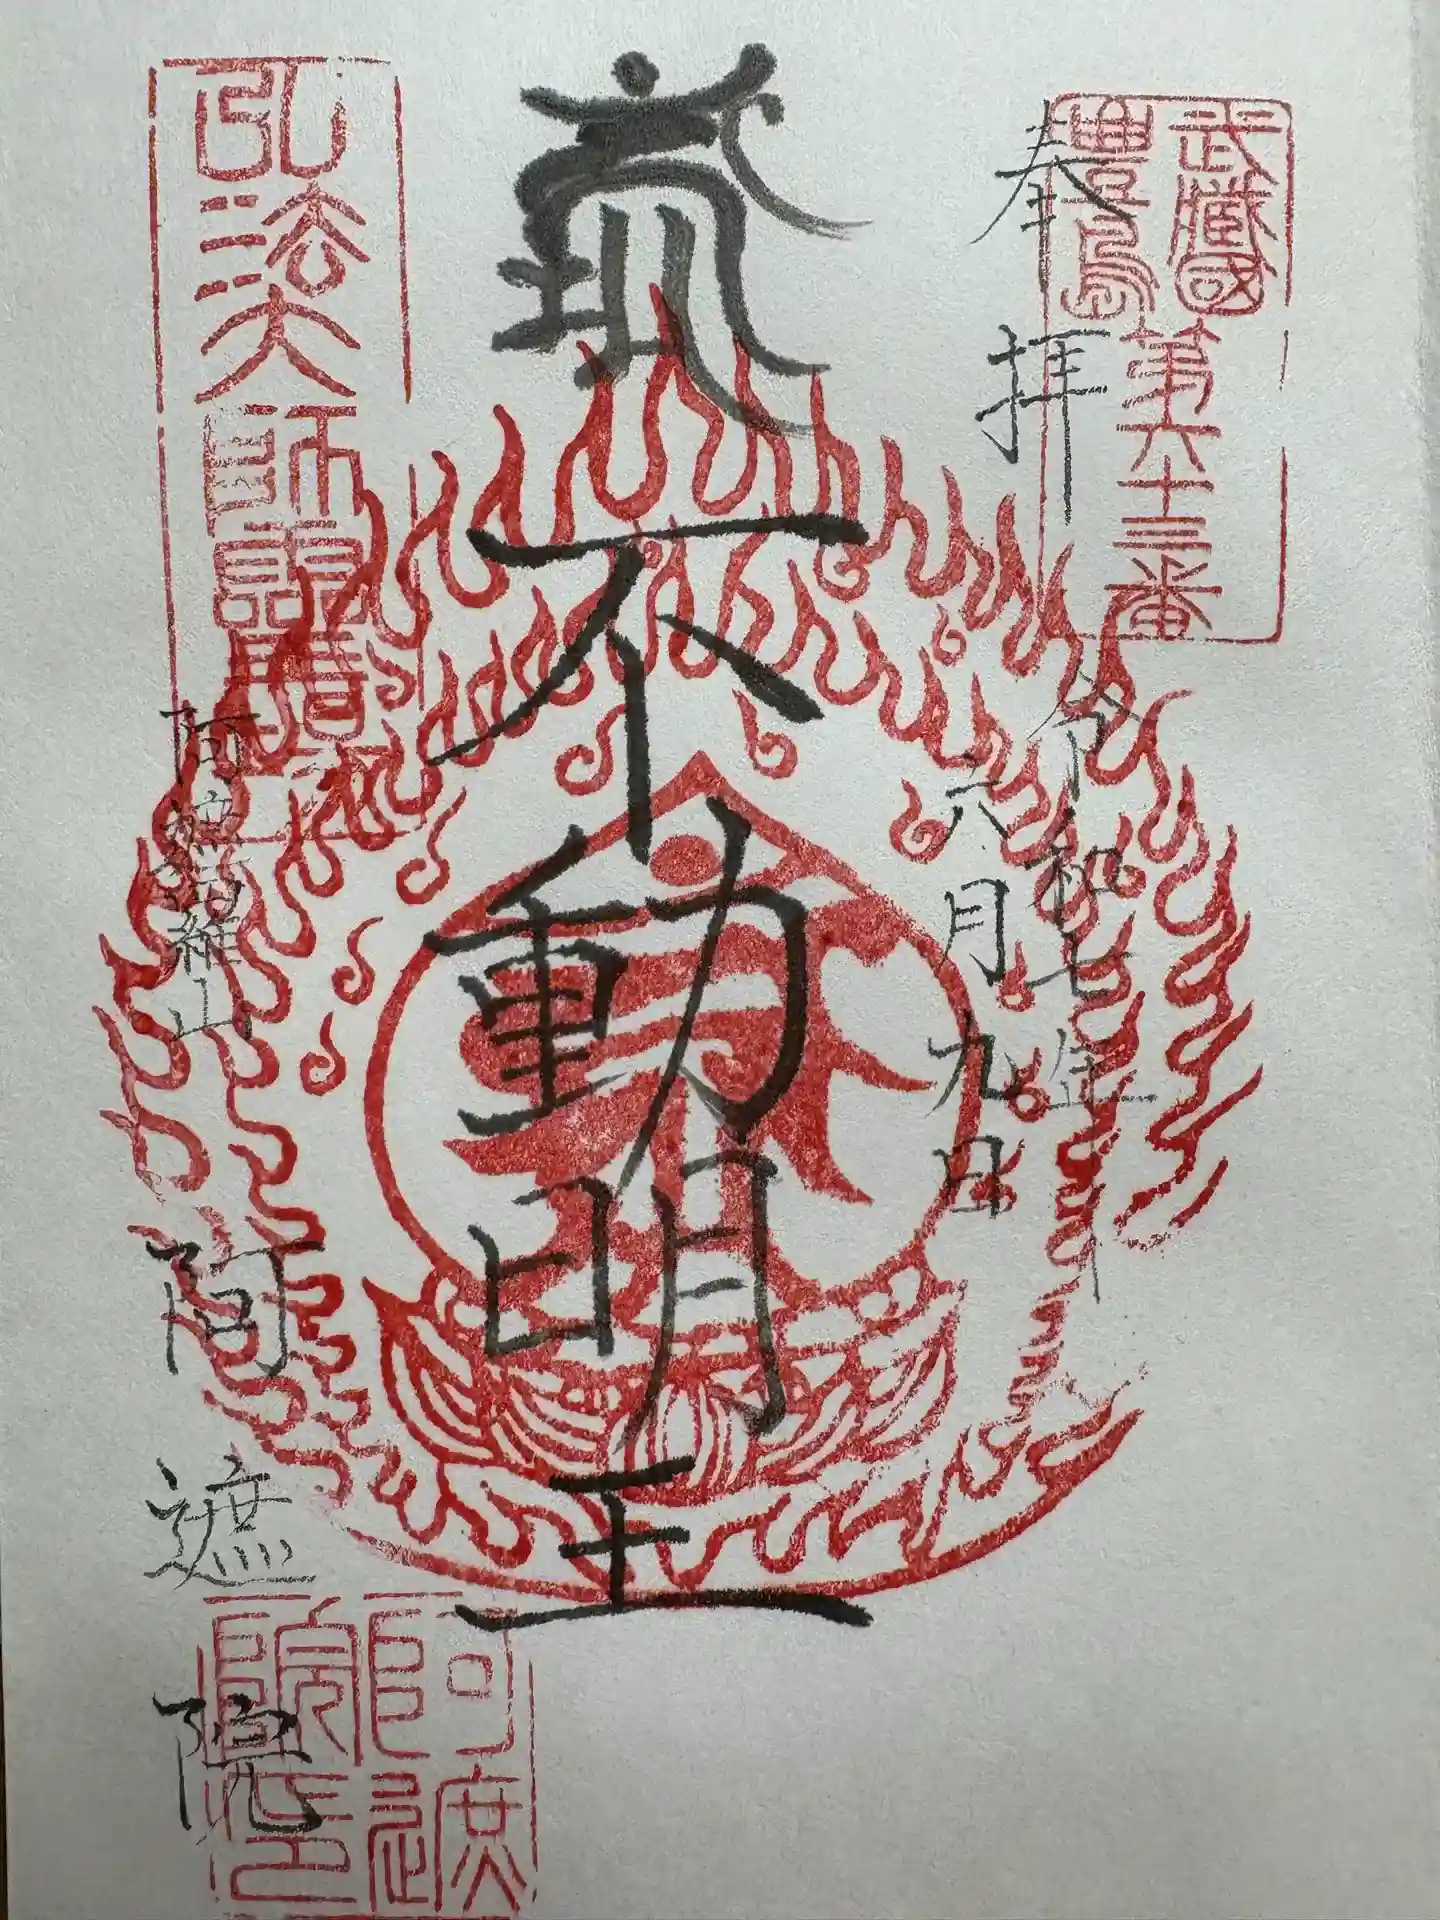 奉拝
武蔵國
豊島
第六十三番
令和七年
六月九日
不動明王
弘法大師霊蹟
阿遮院
阿遮院印